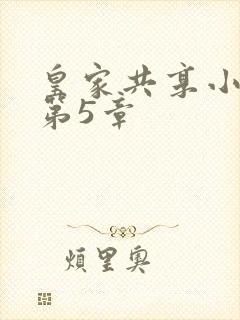 皇家共享小
第5章
烦里奥